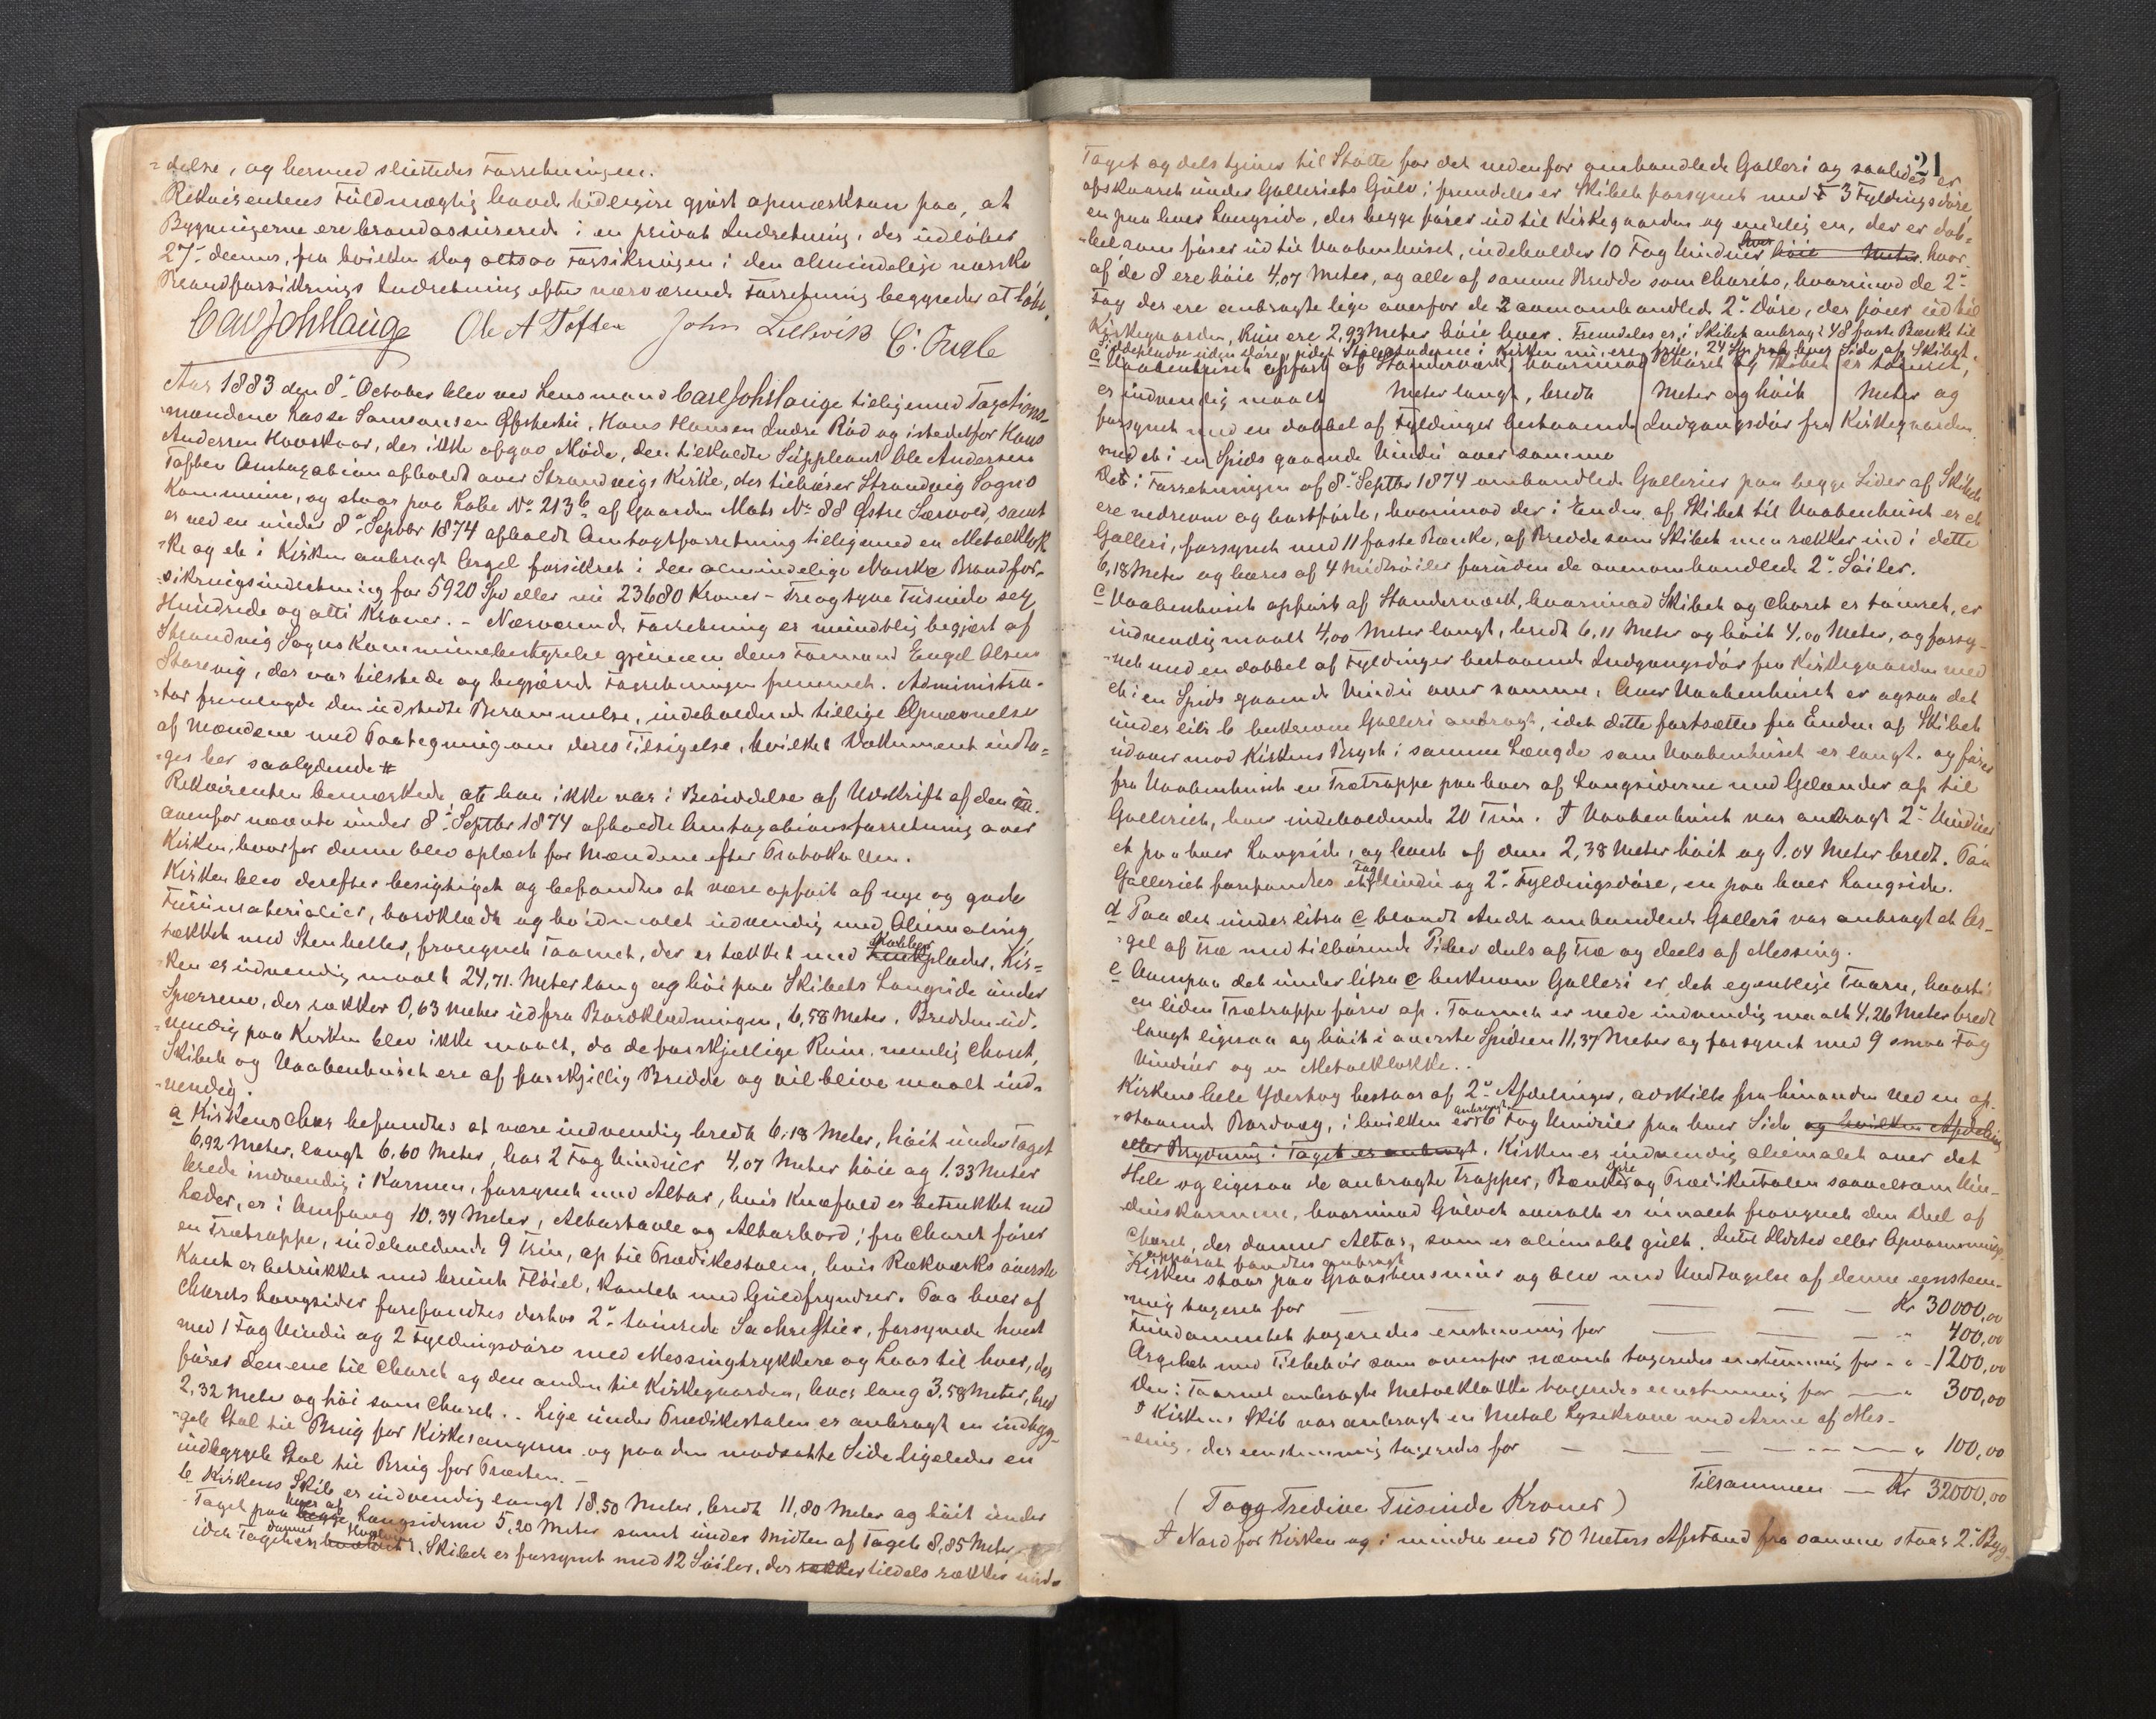 -delse, og hermed sluttedes Forretningen.
Rekvirentens Fuldmægtig havde tidligere gjort opmærksom paa, at
Bygningerne ere brandassurerede i en privat Indretning, der udløber
27de dennes, fra hvilken Dag altsaa Forsikringen i den almindelige norske
Brandforsikrings Indretning efter nærværende Forretning begynder at løbe.
Carl Joh Hauge Ole A Toften John Lillevik
Aar 1883 den 8de October blev ved Lensmand Carl Joh Hauge tilligemed Taxtions-
mændene Lasse Samsonsen, Hans Hansen Indre Rød og istedetfor Hans
Andersen Haaskaar, der ikke afgav Møde, den tilkaldte Suppleant Ole Andersen
Toften Omtaxation afholdt over Strandvigs Kirke, der tilhører Strandvig Sogns
Kommune, og staar paa Løbe No 213b af Gaarden Matr No 88 Østre Særvold, samt
er ved en under 8de Septbr 1874 afholdt Omtaxtforretning tilligemed en Metalklok-
-ke og et i Kirken anbragt Orgel forsikret i den almindelige Norske Brandfor-
-sikringsindretning for 5920 Spd eller nu 23680 Kroner - Treogtyve Tusinde sex
Hundrede og otti Kroner. - Nærværende Forretning er mundtlig begjært af
Strandvig Sogns Kommunebestyrelse gjennem dens Formand Engel Olsen
Storevig, der var tilstede og begjærede Forretningen fremmet. Administra-
-tor fremlagde den udstedte Berammelse, indeholdende tillige Opnævnelse
af Mændene med Paategning om deres Tilsigelse, hvilket Dokument indta-
-ges her saalydende #
Rekvirenten bemærkede at han ikke var i Besiddelse af Udskrift af den
ovenfor nævnte under 8de Septbr 1874 afholdte Omtaxationsforretning over
Kirken, hvorfor denne blev oplæst for Mændene efter Protokollen.
Kirken blev derefter besigtiget og befandtes at være opført af nye og gode
Furumaterialier, bordklædt og hvidmalet udvendig med Oliemaling,
tækket med Stenheller, fraregnet Taarnet, der er tækket med plader. Kir-
-ken er udvendig maalt 24,71 Meter lang og høi paa Skibets Langside under
Spærrene, der rækker 0,63 Meter ud fra Bordklædningen, 6,58 Meter. Bredden ud-
-vendig paa Kirken blev ikke maalt, da de forskjellige Rum, nemlig Choret,
Skibet og Vaabenhuset ere af forskjellig Bredde og vil blive maalt ind-
-vendig.
a Kirkens Chor befandtes at være indvendig bredt 6,18 Meter, høit under Taget
6,92 Meter, langt 6,60 Meter, har 2 Fag Vinduer 4,07 Meter høie og 1,33 Meter
brede indvendig i Karmen, forsynet med Altar, hvis Knæfald er betrukket med
Læder, er i Omfang 10,34 Meter, Altartavle og Altarbord; fra Choret fører
en Trætrappe, indeholdende 9 Trin, op til Prædikestolen, hvis Rækværks øverste
Kant er betrukket med brunt Fløiel, kantet med Guldfryndser. Paa hver af
Chorets Langsider forefandtes derhos 2de tømrede Sachristier, forsynede hvert
med 1 Fag Vindu og 2 Fyldningsdøre med Messingtrykkere og Laas til hver, der
fører den ene til Choret og den anden til Kirkegaarden, hver lang 3,58 Meter, bred
2,32 Meter og høi som Choret. - Lige under Prædikestolen er anbragt en indbyg-
-get Stol til Brug for Kirkesangeren og paa den modsatte Side ligeledes en
indbygget Stol til Brug for Præsten. -
b Kirkens Skib er indvendig langt 18,50 Meter, bredt 11,80 Meter og høit under
Taget paa hver af Langsiderne 5,20 Meter samt under Midten af Taget 8,85 Meter,
idet Taget danner Hvælving. Skibet er forsynet med 12 Søiler, der rækker tildels rækker und-
21
Taget og dels tjener til Støtte for det nedenfor omhandlede Galleri og saaledes er
afskaaret under Galleriets Gulv; fremdeles er Skibet forsynet med 3 Fyldingsdøre
en paa hver Langside, der begge fører ud til Kirkegaarden og endelig en, der er dob-
-bel som fører ud til Vaabenhuset, indeholder 10 Fag Vinduer hver høie Meter, hvor-
af de 8 ere høie 4,07 Meter, og alle af samme Bredde som Chorets, hvorimod de 2de
Fag der ere anbragte lige overfor de 2 ovenomhandlede 2de Døre, der fører ud til
Kirkegaarden, kun ere 2,93 Meter høie hver. Fremdeles er i Skibet anbragt 48 faste Bænke til
Siddepladse uden Døre, idet Stolestaderne i Kirken nu ere frie, 24 Stk paa hver Side af Skibet.
c Vaabenhuset opført af Standerværk, hvorimod Choret og Skibet er tømret,
er indvendig maalt Meter langt, bredt Meter og høit Meter og
forsynet med en dobbel af Fyldinger bestaaende Indgangsdør fra Kirkegaarden
med et i en Spids gaaende Vindu over samme
De i Forretningen af 8de Septbr 1874 omhandlede Gallerier paa begge Sider af Skibet
ere nedrevne og bortførte, hvorimod der i Enden af Skibet til Vaabenhuset er et
Galleri, forsynet med 11 faste Bænke, af Bredde som Skibet men rækker ind i dette
6,18 Meter og bæres af 4 Midtsøiler foruden de ovenomhandlede 2de Søiler.
c Vaabenhuset opført af Standerværk, hvorimod Skibet og Choret er tømret, er
indvendig maalt 4,00 Meter langt, bredt 6,11 Meter og høit 4,00 Meter, og forsy-
-net med en dobbel af Fyldinger bestaaende Indgangsdør fra Kirkegaarden med
et i en Spids gaaende Vindu over samme. Over Vaabenhuset er ogsaa det
under litr b beskrevne Galleri anbragt, idet dette fortsættes fra Enden af Skibet
udover mod Kirkens Bryst i samme Længde som Vaabenhuset er langt. og fører
fra Vaabenhuset en Trætrappe paa hver af Langsiderne med Gelænder op til
Galleriet, hver indeholdende 20 Trin. I Vaabenhuset var anbragt 2de Vinduer
et paa hver Langside, og hvert af dem 2,38 Meter høit og 1,04 Meter bredt. Paa
Galleriet forefandtes et Fag Vindu og 2de Fyldingsdøre, en paa hver Langside.
d Paa det under litra c blandt Andet omhandlede Galleri var anbragt et Or-
-gel af Træ med tilhørende Piber dels af Træ og deels af Messing.
e Ovenpaa det under litra c beskrevne Galleri er det egentlige Taarn, hvortil
en liden Trætrappe fører op. Taarnet er nede indvendig maalt 4,26 Meter bredt
langt ligesaa og høit i øverste Spidsen 11,37 Meter og forsynet med 9 smaa Fag
Vinduer og en Metalklokke.
Kirkens hele Ydertag bestaar af 2de Afdelinger, adskilte fra hinanden ved en op-
-staaende Bordvæg, i hvilken er anbragt 6 Fag Vinduer paa hver Side og hvilken Afdeling
eller Brydning i Taget er anbragt. Kirken er indvendig oliemalet over det
Hele og ligesaa de anbragte Trapper, Bænke, Døre og Prædikestolen saavelsom Vin-
-dueskarmene, hvorimod Gulvet overalt er umalet fraregnet den Deel af
Choret, der danner Altar, som er oliemalet gult. Intet Ildsted eller Opvarmnings-
apparat fandtes anbragt
Kirken staar paa Graastensmur og blev med Undtagelse af denne eenstem-
-mig taxeret for — — — — — Kr 30000,00
Fundamentet taxeredes enstemmig for — — — " 400,00
Orgelet med Tilbehør som ovenfor nævnt taxeredes enstemmig for - " - 1200,00
Den i Taarnet anbragte Metalklokke taxeredes eenstemmig for — " 300,00
I Kirkens Skib var anbragt en Metal Lysekrone med Arme af Mes-
-sing, der eenstemmig taxeredes for — — — — " 100,00
Tilsammen — Kr 32000,00
(Toog Tredive Tusinde Kroner)
I Nord for Kirken og i mindre end 50 Meters Afstand fra samme staar 2de Byg-